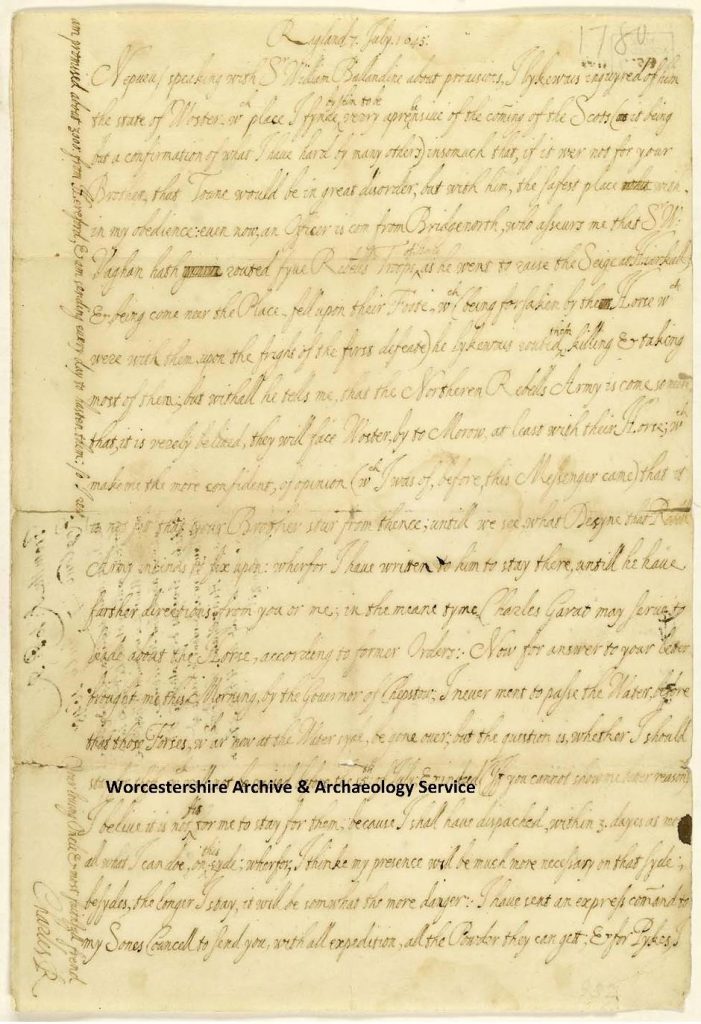 Ragland 7. July. 1645.
1780
Nepueu, speaking with Sr William Ballandine about provisions, I lykewais enquyred of him
the state of Woster, wch place I fynde, very aprehensive of the coming of the Scots (it being
but a confirmation of what I have hard by many others) insomuch that, if it wer not for your
Brother, that Towne would be in great disorder, but with him, the safest place
in my obedience: even now, an Officer is com from Bridgenorth, who asseurs me that Sr W:
Vaghan hath routed fyve Rebells Troops, as he went to raise the Seige at
& being come near the Place, fell upon their Foote, wch (being forsaken by the Horse wch
were with them, upon the fright of the first defeate) he lykewais routed them, killing & taking
most of them; but withall he tells me, that the Northeren Rebells Army is come so
that, it is verely belived, they will face Woster, by to Morow, at least with their Horse; wch
make me the more confident, of opinion (wch I was of, before, this Messenger came) that it
is not fit that your Brother stur from thence, untill we see, what Desyne that Rebell
Army intends to fix upon: wherfor I have writen to him to stay there, untill he have
further directions from you or me; in the meane tyme Charles Garat may serve to
about the Horse, according to former Orders: Now for answer to your letter
brought me this Morning, by the Governor of Chepstow: I never ment to passe the Water, before
that those Forses, wch ar now at the Water syde, be gone over; but the question is, whether I should
stay if you cannot show me better reasons
Worcestershire Archive & Archaeology Service
I beleive it is not fit for me to stay for them, because I shall have dispached, within 3. dayes
all what I can doe, on this syde; wherfor, I thinke my presence will be much more necessary on that syde;
besydes, the longer I stay, it will be somwhat the more danger: I have sent an express comand to
my Sones Councell to send you, with all expedition, all the Powder they can gett: & for Pykes, I
am promised about 2000 from Hereford, & am sending every day to hasten them: so I rest
Your loving Oncle & most faithfull frend
Charles R.